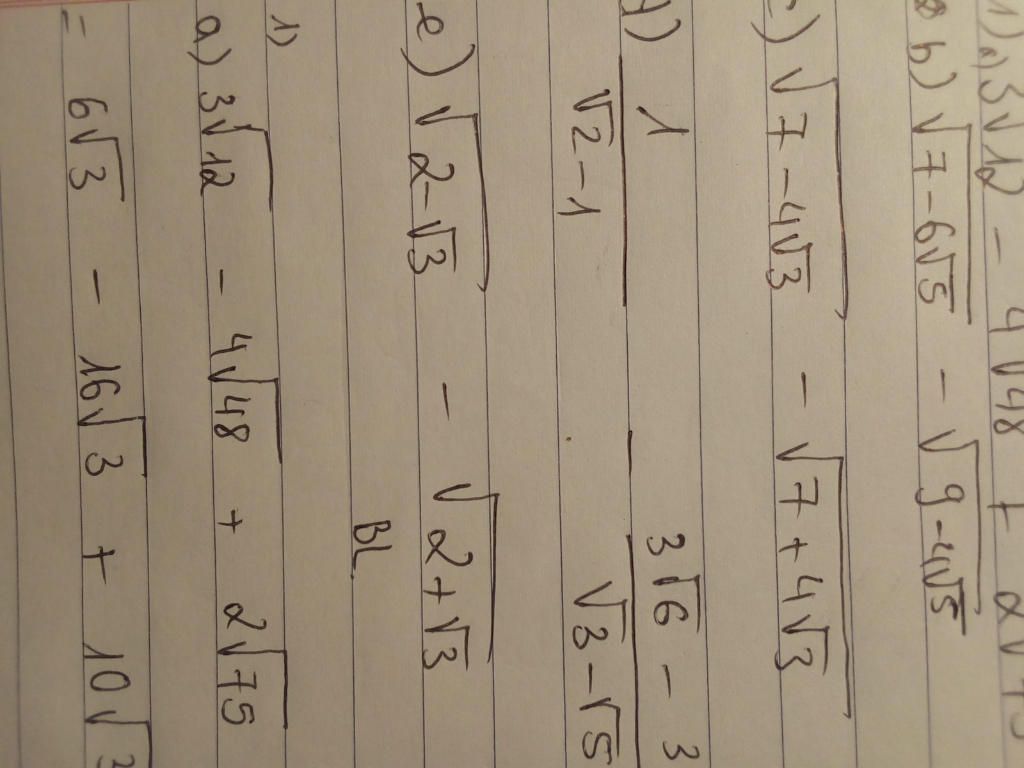 1) a, 3√12 - 4√48 + 2√75
b) √7-6√5 - √9-4√5
c) √7-4√3 - √7+4√3
1 3√6 - 3
d) √2-1 √3-√5
e) √2-√3 - √2+√3
BL
1)
a) 3√12 - 4√48 + 2√75
= 6√3 - 16√3 + 10√3